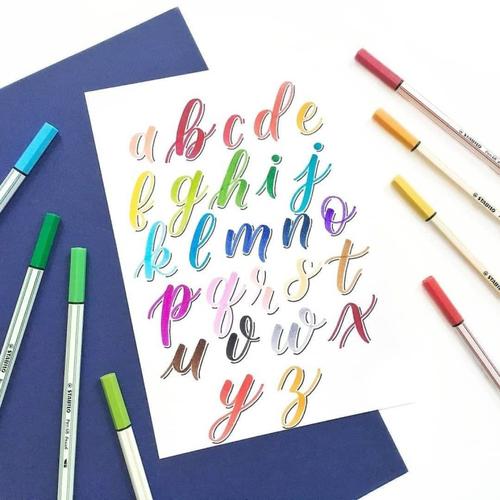 a b c d e
f g h i j
k l m n o
p q r s t
u v w x
y z
STABILO
STABILO
STABILO
STABILO
STABILO
STABILO
STABILO